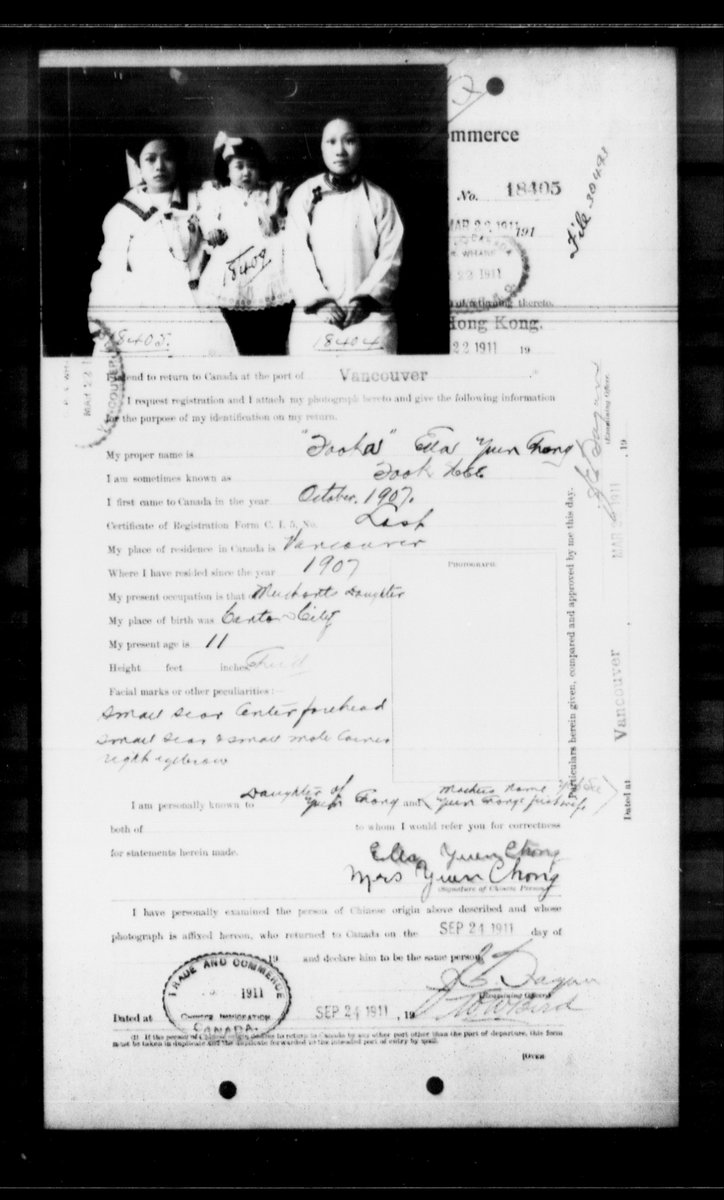 ommerce
No. 18405
File 30493
MAR 22 1911 191
22 1911
of returning thereto.
Hong Kong.
22 1911 19
18405.
18403
18404
I intend to return to Canada at the port of Vancouver
I request registration and I attach my photograph hereto and give the following information
for the purpose of my identification on my return.
My proper name is "Fooka" Ella Yuen Chong
I am sometimes known as Fook
I first came to Canada in the year October, 1907.
Certificate of Registration Form C. I. 5, No. Lost
My place of residence in Canada is Vancouver
Where I have resided since the year 1907
My present occupation is that of Merchants Daughter
My place of birth was Canton City
My present age is 11
Height feet inches
Facial marks or other peculiarities:—
Small scar Center forehead
Small scar & small mole Corner
right eyebrow
PHOTOGRAPH.
I am personally known to Daughter of Yuen Chong and Mothers Name
Yuen Chongs first wife
both of to whom I would refer you for correctness
for statements herein made.
Ella Yuen Chong
Mrs Yuen Chong
(Signature of Chinese Person)
I have personally examined the person of Chinese origin above described and whose
photograph is affixed hereon, who returned to Canada on the SEP 24 1911 day of
19 and declare him to be the same person.
(Examining Officer)
TRADE AND COMMERCE
1911
CHINESE IMMIGRATION
CANADA.
Dated at SEP 24 1911, 19
(1) If the person of Chinese origin desires to return to Canada by any other port other than the port of departure, this form
must be taken in duplicate and the duplicate forwarded to the intended port of entry by mail.
[OVER
Particulars herein given, compared and approved by me this day.
Dated at Vancouver, MAR 1911, 19
(Examining Officer)